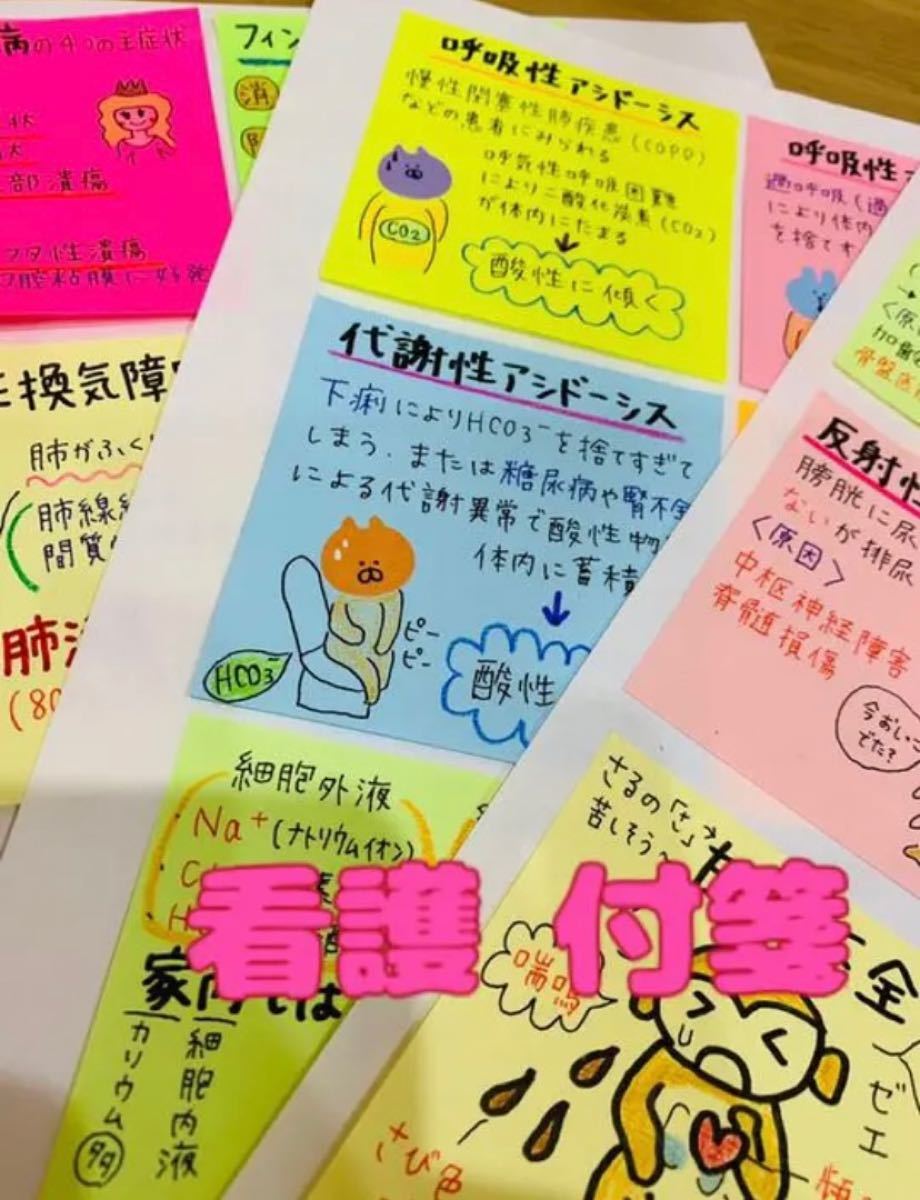 病の4つの主症状
状
状
部潰瘍
フタ性潰瘍
腔粘膜に好発
フィン
消
呼吸性アシドーシス
慢性閉塞性肺疾患(COPD)
などの患者にみられる
呼気性呼吸困難
により二酸化炭素(CO2)
が体内にたまる
CO2
酸性に傾く
呼吸性
過呼吸(過
により体内
を捨てす
代謝性アシドーシス
下痢によりHCO3⁻を捨てすぎて
しまう、または糖尿病や腎不全
による代謝異常で酸性物
体内に蓄積
ピー
ピー
HCO3⁻
酸性
換気障
肺がふく
肺線維
間質
肺
(80
〈原
加齢
骨盤底
反射性
膀胱に尿
ないが排尿
〈原因〉
中枢神経障害
脊髄損傷
今おしっこ
でた?
細胞外液
Na⁺(ナトリウムイオン)
看護 付箋
家
では
カリウム
多
細胞内液
さるの「さ」
苦しそう〜
喘鳴
全
ゼエ
さび色